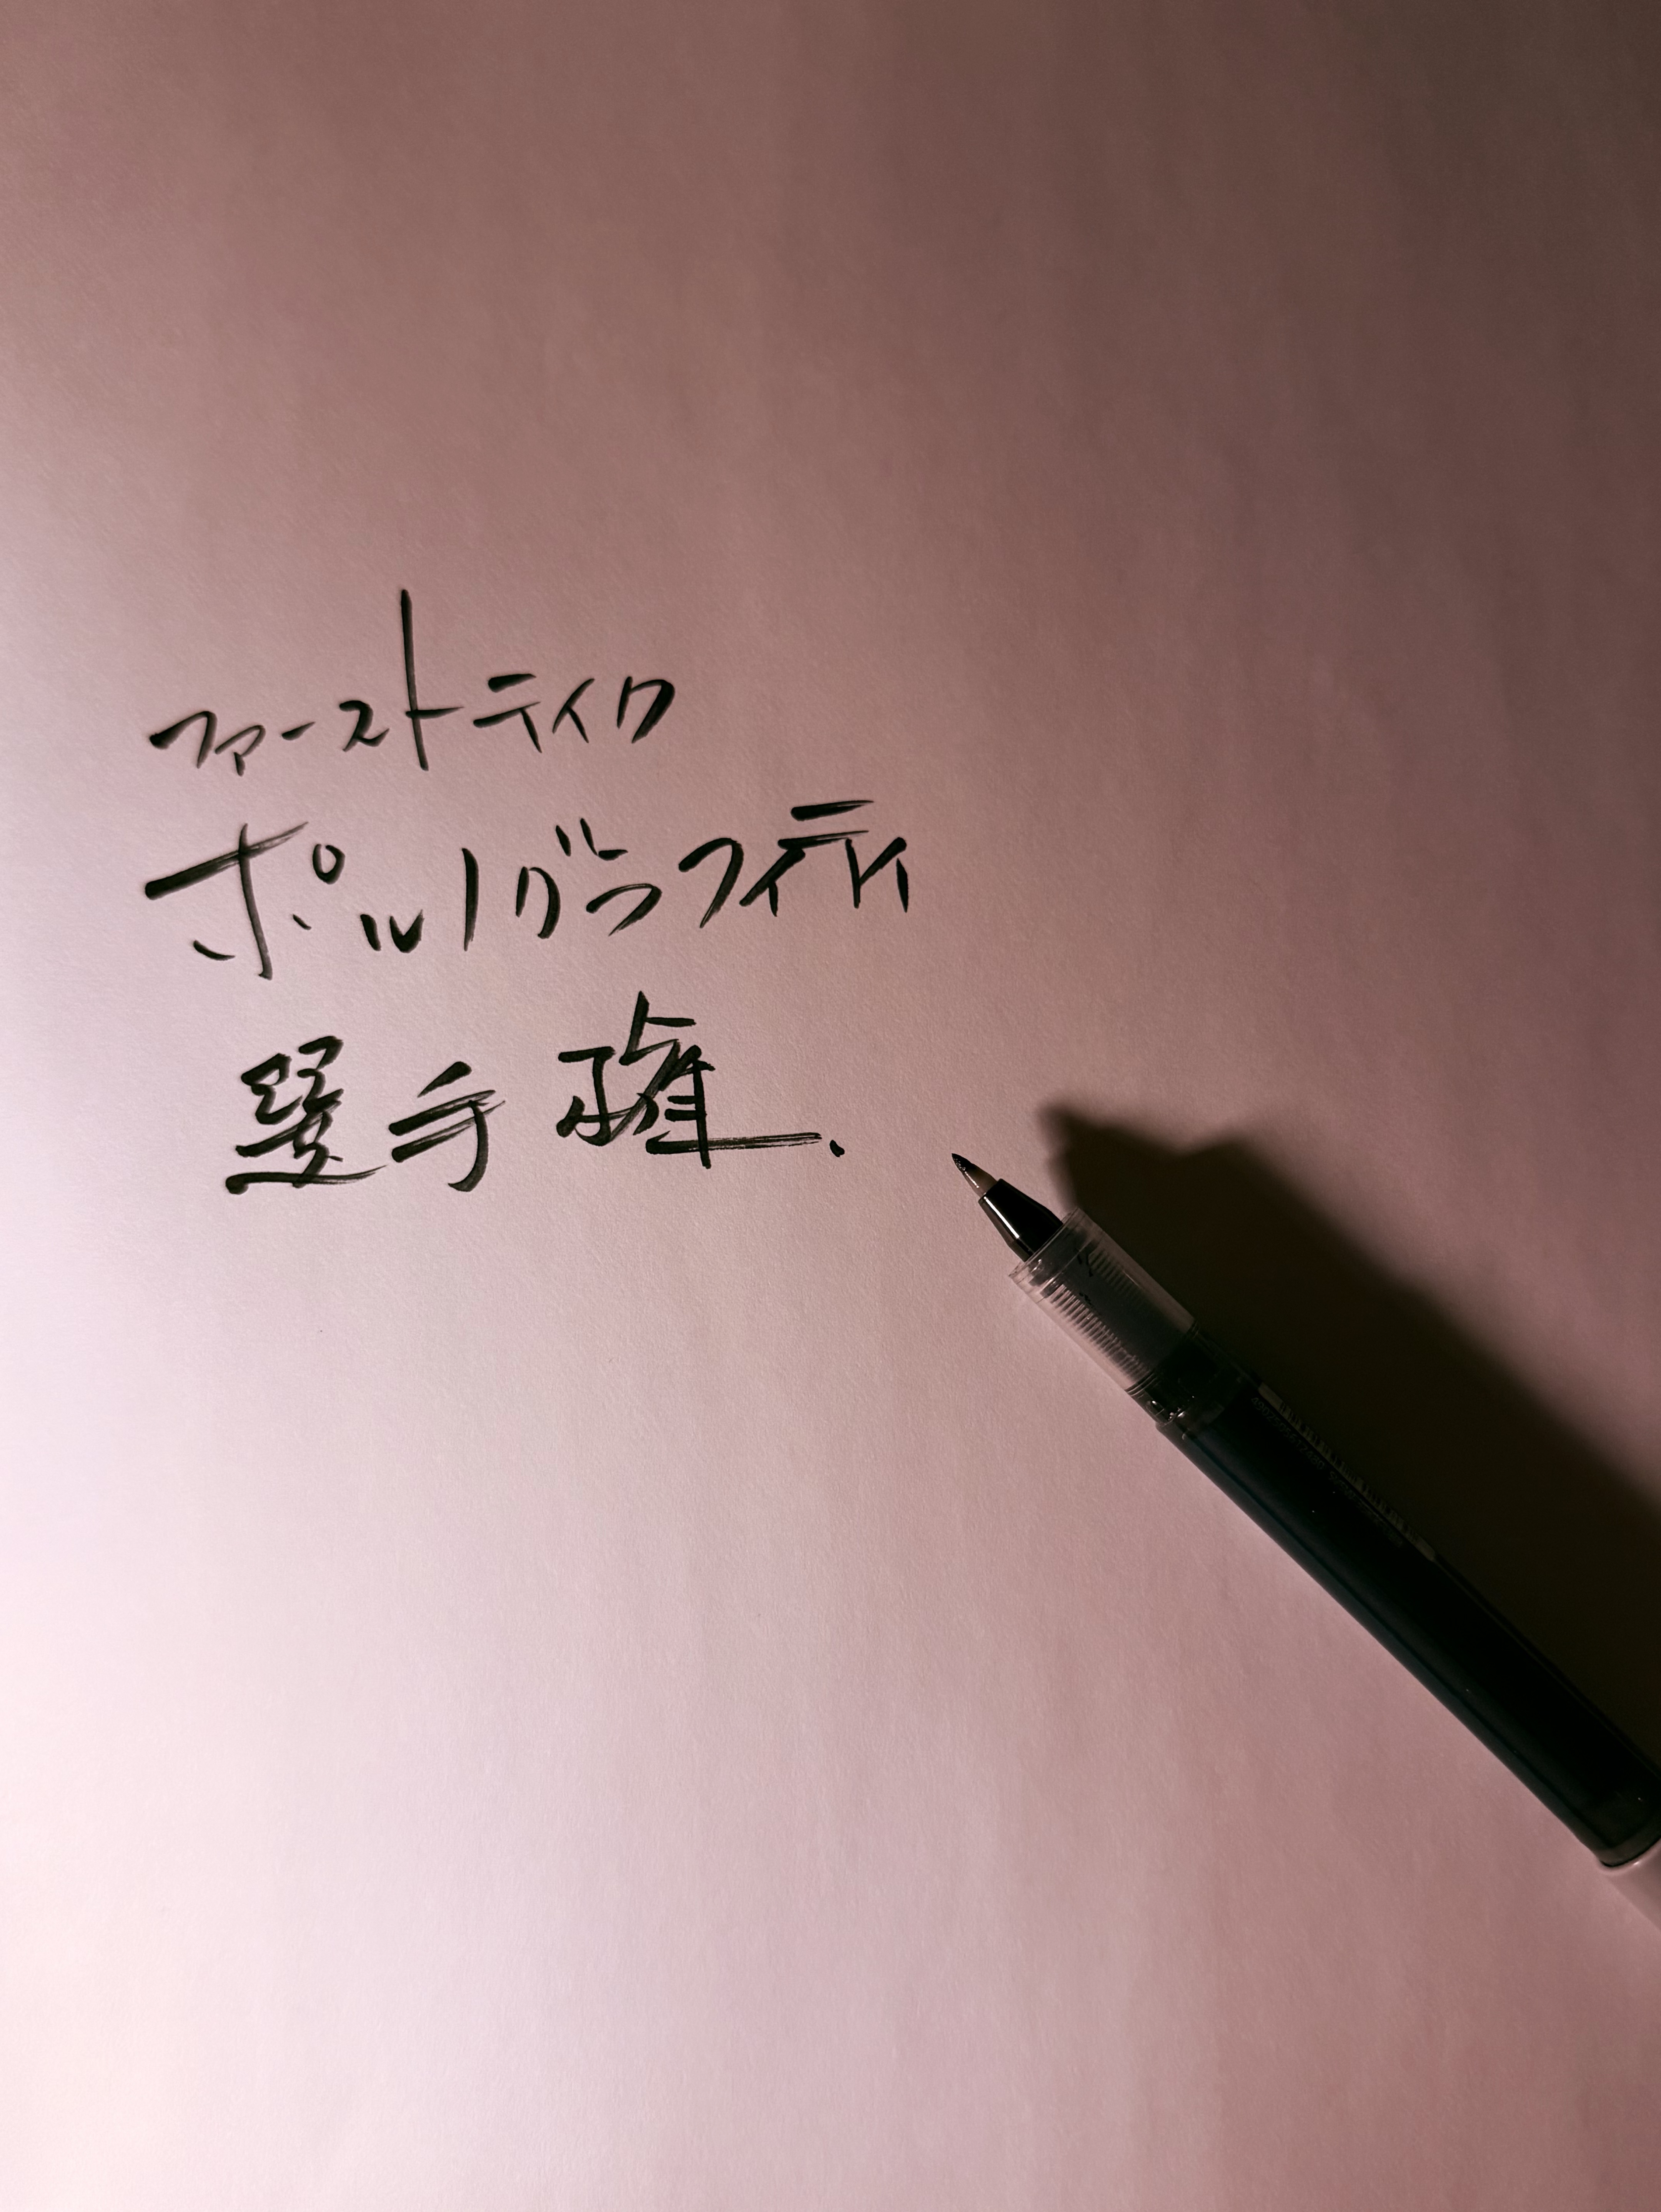 ファーストテイク
ポルノグラフィティ
選手権.